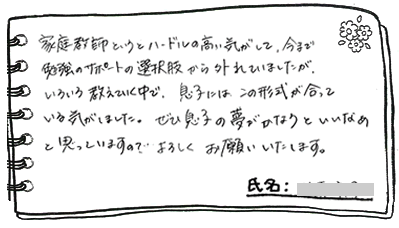 家庭教師というとハードルの高い気がして、今まで
勉強のサポートの選択肢から外れていましたが、
いろいろ教えていく中で、息子には この形式が合って
いる気がしました。ぜひ息子の夢がかなうといいなぁ
と思っていますので よろしく お願いいたします。
氏名: